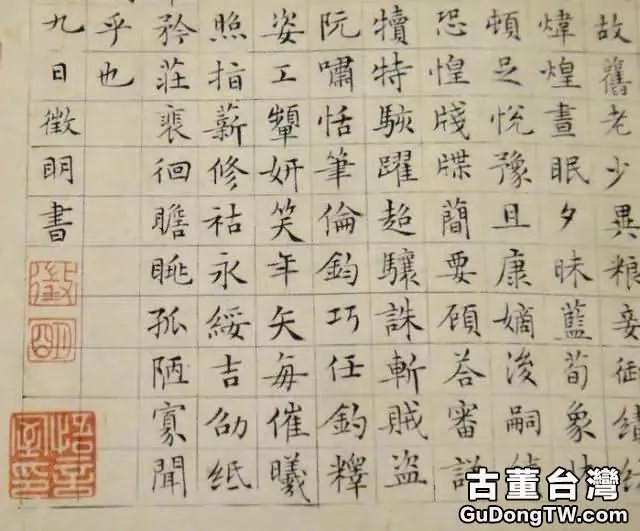 故舊老少異粮妾御績
煒煌晝眠夕昧藍荀象
頓足悅豫且康嫡後嗣續
恐惶牋牒簡要顧答審詳
犢特駭躍超驤誅斬賊盜
阮嘯恬筆倫鈞巧任釣釋
姿工顰妍笑年矢每催曦
照指薪修祜永綏吉劭紙
矜莊裴徊瞻眺孤陋寡聞
乎也
九日徵明書
徵
明
悟言室印
古董台灣
GuDongTW.com